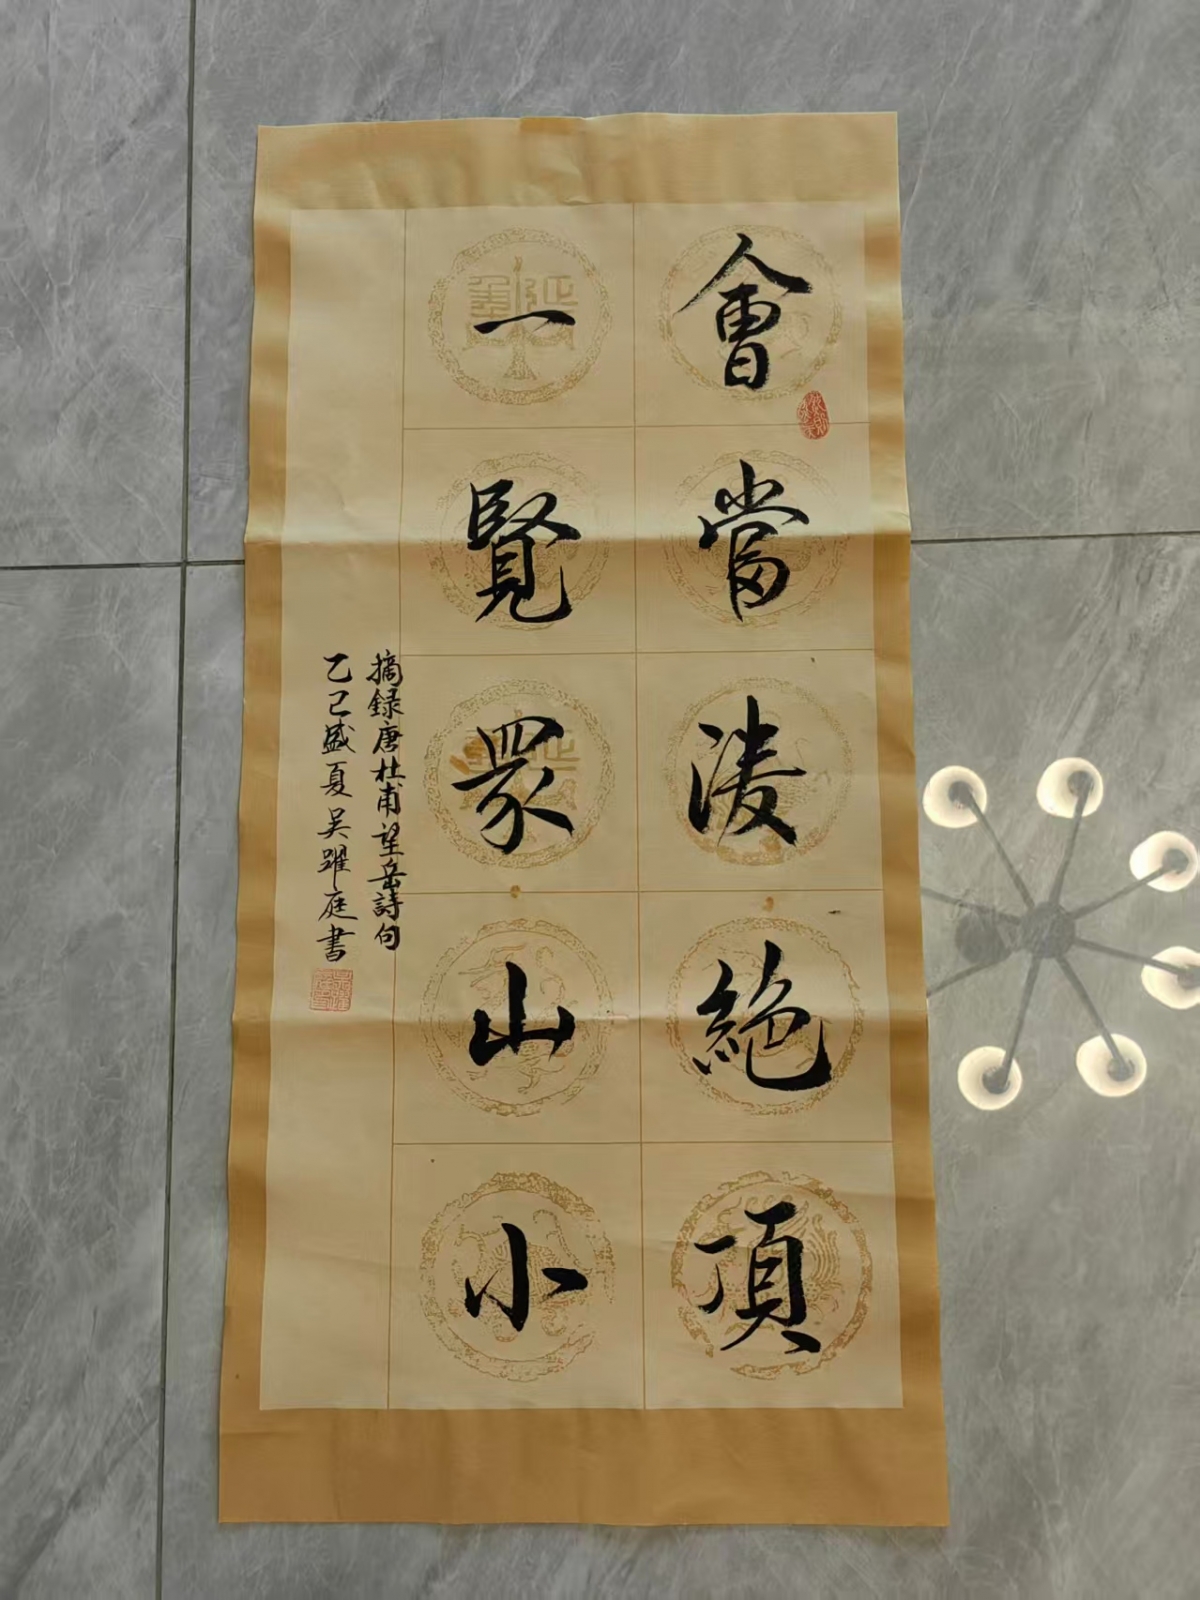 會當凌絕頂
一覽眾山小
摘録唐杜甫望岳詩句
乙己盛夏吴躍庭書